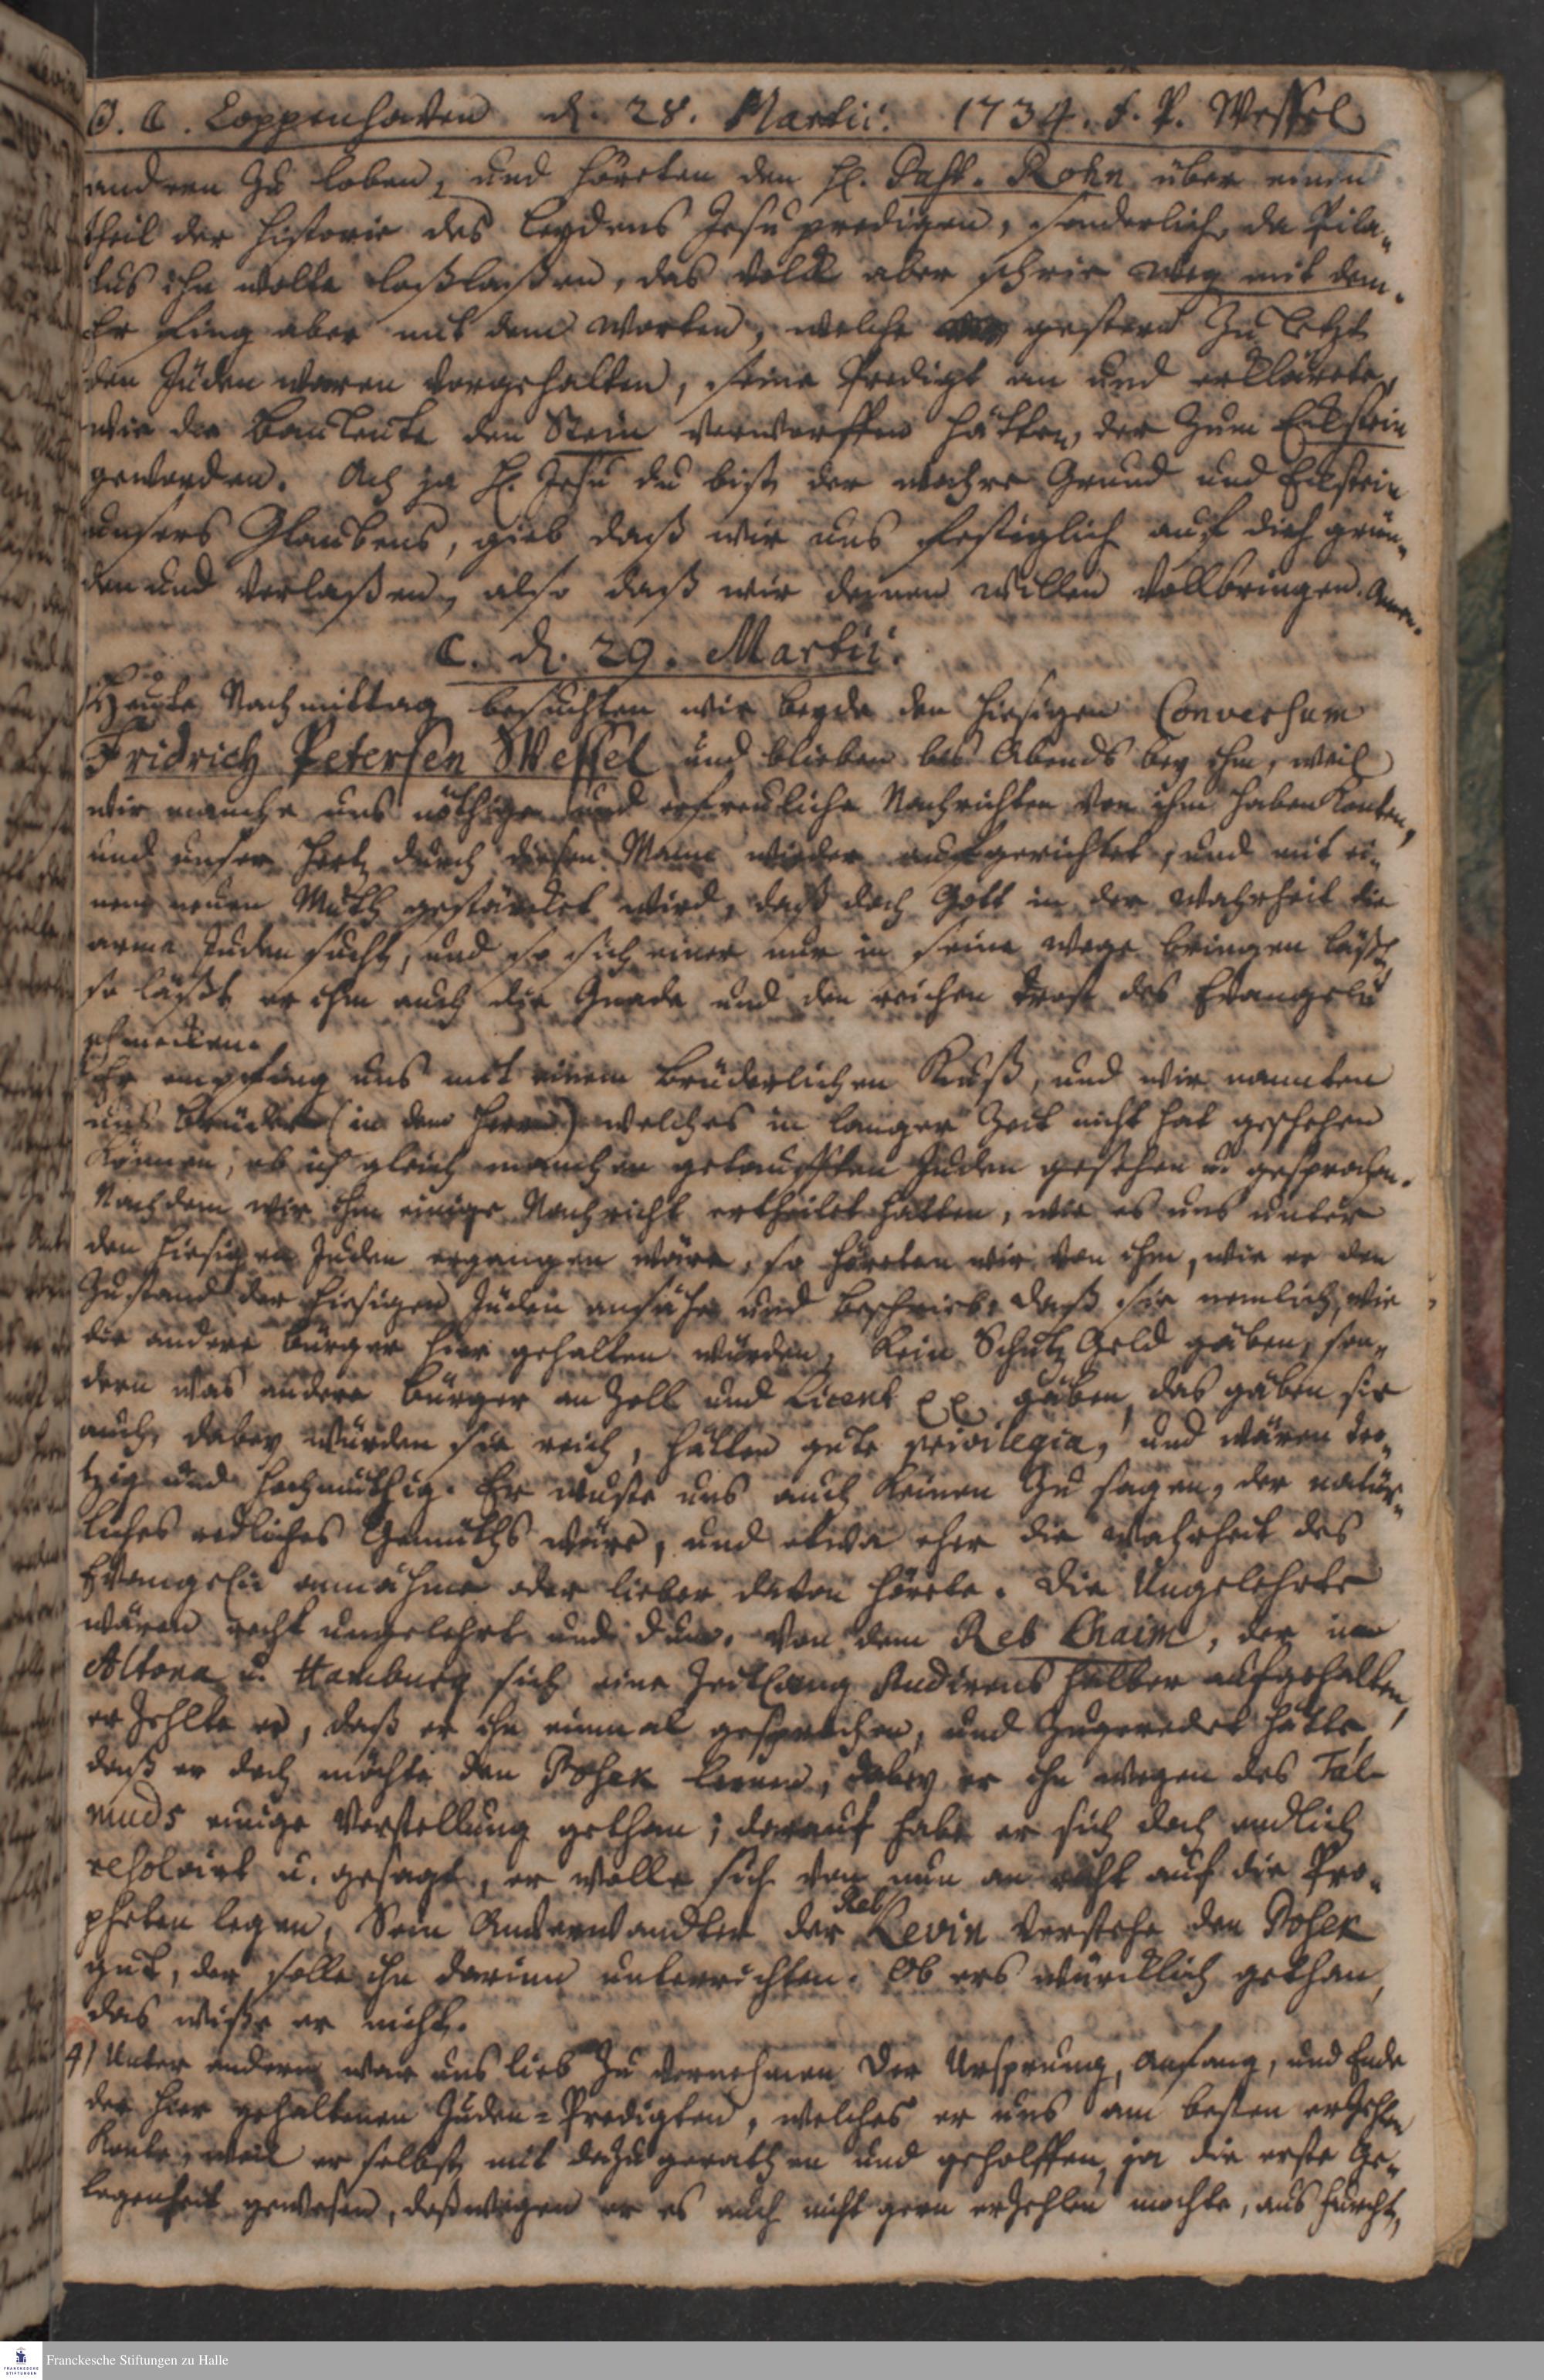 Coppenhaven d. 28. Martii. 1734. F. P. Wessel
andren zu loben, und höreten den H. Past. Rohn über einen
theil der Historie des Leydens Jesu predigen, sonderlich da Pila-
tus ihn wolte loßlaßen, das Volck aber schrie weg mit dem.
Er fing aber mit dem Worten, welche gestern zu letzt
den Juden waren vorgehalten, seine Predigt an und erklärete,
wie die Bauleute den Stein verworffen hätten, der zum Eckstein
geworden. Ach ja H. Jesu du bist der wahre Grund und Eckstein
unsers Glaubens, gieb daß wir uns festiglich auf dich grün-
den und verlaßen, also daß wir deinen willen vollbringen. Amen.
C. d. 29. Martii.
Heute Nachmittag besuchten wir beyde den hiesigen Conversum
Fridrich Petersen Wessel und blieben bis Abends bey ihm, weil
wir manche uns nöthige und erfreuliche Nachrichten von ihm haben konten,
und unser Hertz durch diesen Mann wieder aufgerichtet, und mit ei-
nem neuen Muth gestärcket wird, daß doch Gott in der Wahrheit die
arme Juden sucht, und so sich einer nur in seine wege bringen läßt,
so läßt er ihm auch die Gnade und den reichen Trost des Evangelii
schmecken.
Er empfing uns mit einem brüderlichen Kuß, und wir nannten
uns Brüder (in dem Herrn) welches in langer Zeit nicht hat geschehen
können, ob ich gleich manchen getaufften Juden gesehen u. gesprochen.
Nachdem wir ihm einige Nachricht ertheilet hatten, wie es uns unter
den hiesigen Juden ergangen wäre, so höreten wir von ihm, wie er den
Zustand der hiesigen Juden ansähe und beschrieb, daß sie nemlich, wie
die andere Bürger hier gehalten würden, kein Schutz Geld gäben, son-
dern was andere Bürger an Zoll und Licent gäben, das gäben sie
auch, dabey würden sie reich, hätten gute privilegia, und wären tro-
tzig und hochmüthig. Er wuste uns auch keinen zu sagen, der natür-
liches redliches Gemüths wäre, und etwa eher die Wahrheit des
Evangelii annähme oder lieber davon hörete. Die Ungelehrte
wären recht ungelehrt und dum. Von dem Reb Chaim, der in
Altona u. Hamburg sich eine Zeitlang Studirens halber aufgehalten,
erzehlte er, daß er ihn einmal gesprochen, und zugeredet hätte,
daß er doch möchte den Posek lernen, dabey er ihn wegen des Tal-
muds einige Vorstellung gethan; darauf habe er sich doch endlich
resolvirt u. gesagt, er wolle sich von nun an recht auf die Pro-
pheten legen, Sein Anverwandter der Reb Levin verstehe den Posek
gut, der solle ihn darinn unterrichten. Ob ers würcklich gethan,
das wiße er nicht.
4) Unter andern war uns lieb zu vernehmen der Ursprung, Anfang, und Ende
der hier gehaltenen Juden-Predigten, welches er uns am besten erzehlen
konte, weil er selbst mit dazu gerathen und geholffen, ja die erste Ge-
legenheit gewesen, deßwegen er es auch nicht gern erzehlen mochte, aus Furcht,
Franckesche Stiftungen zu Halle